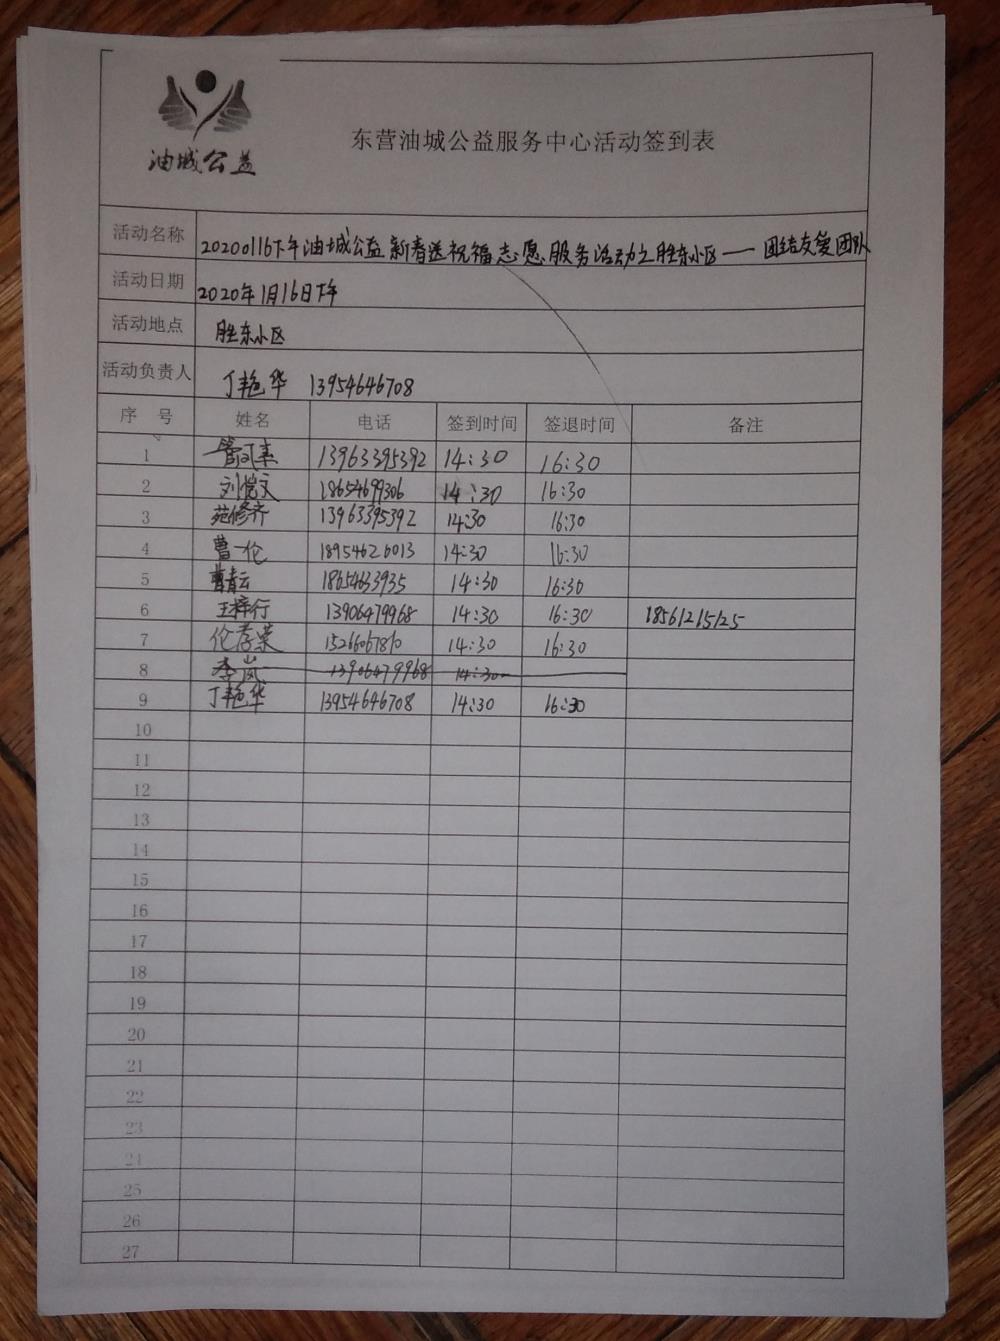 油城公益
东营油城公益服务中心活动签到表
活动名称 20200116下午油城公益新春送祝福志愿服务活动之胜东小区——团结友爱团队
活动日期 2020年1月16日下午
活动地点 胜东小区
活动负责人 丁艳华 13954646708
序号 姓名 电话 签到时间 签退时间 备注
1 13963395392 14:30 16:30
2 18654699306 14:30 16:30
3 苑修齐 13963395392 14:30 16:30
4 曹一伦 18954626013 14:30 16:30
5 曹青云 18654633935 14:30 16:30
6 王梓行 13906479968 14:30 16:30 18561215125
7 14:30 16:30
8 李岚 13906479968 14:30
9 丁艳华 13954646708 14:30 16:30
10
11
12
13
14
15
16
17
18
19
20
21
22
23
24
25
26
27